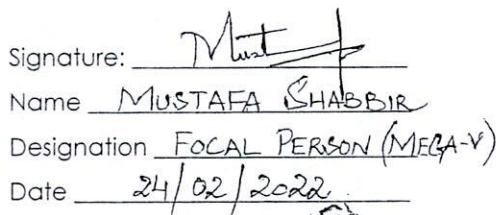 Signature: Must
Name MUSTAFA SHABBIR
Designation FOCAL PERSON (MEGA-V)
Date 24/02/2022